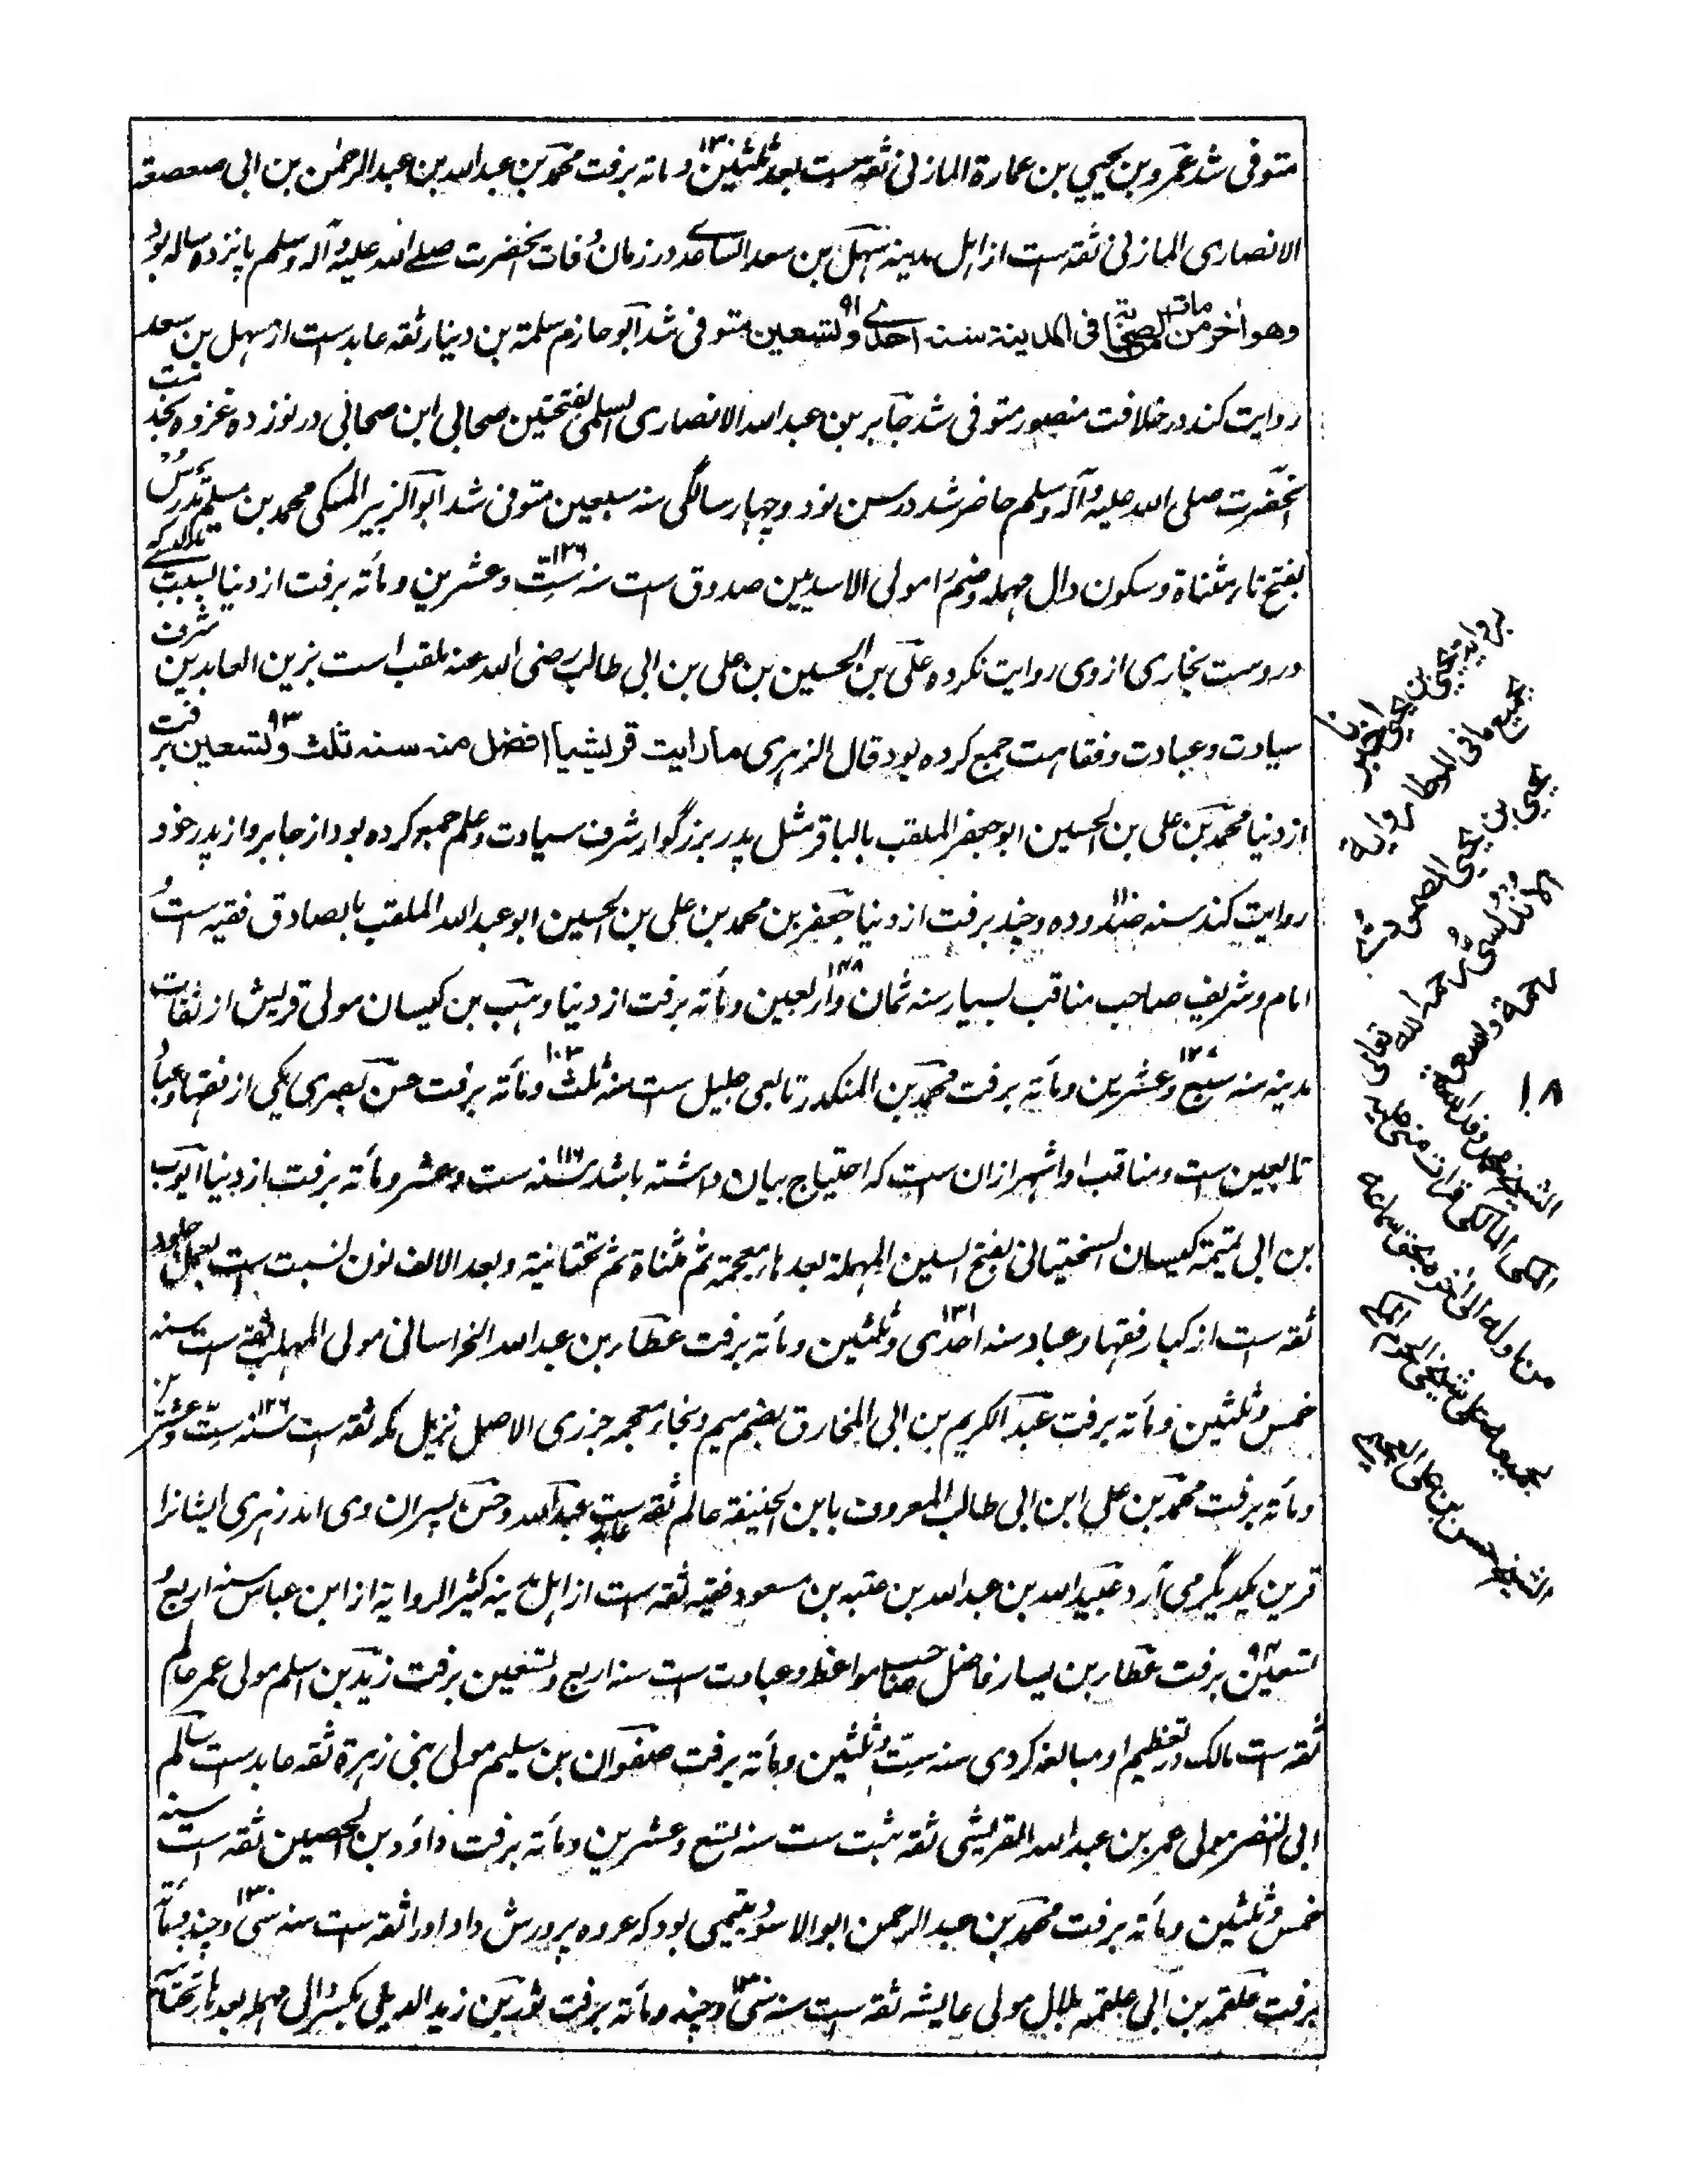 متوفی شد عمرو بن یحیی بن عمارة المازنی ثقه ست بعد ثلثین ۱۳۰ و مائه برفت محمد بن عبدالله بن عبدالرحمٰن بن ابی صعصعه
الانصاری المازنی ثقه ست از اهل مدینه سهل بن سعد الساعدے در زمان وفات آنحضرت صلے الله علیه وآله وسلم پانزده ساله بود
وهو اٰخر من مات من الصحابة فی المدینة سنه احدے و تسعین ۹۱ متوفی شد ابو حازم سلمة بن دینار ثقه عابد ست از سهل بن سعد
روایت کند در خلافت منصور متوفی شد جابر بن عبدالله الانصاری السلمی بفتحتین صحابی ابن صحابی در نوزده غزوه بخدمت
آنحضرت صلی الله علیه وآله وسلم حاضر شد در سن نود و چهار سالگی سنه سبعین متوفی شد ابو الزبیر المکی محمد بن مسلم بن تدرس
بفتح تاء مثناة و سکون دال مهمله و ضم را مولی الاسدیین صدوق ست سنه ستّ ۱۲۶ و عشرین و مأته برفت از دنیا بسبب تدلیسے که
دروست بخاری ازوی روایت نکرده علی بن الحسین بن علی بن ابی طالب رضی الله عنه ملقب است بزین العابدین شرف
سیادت و عبادت و فقاهت جمع کرده بود قال الزهری ما رایت قریشیاً افضل منه سنه ثلث و تسعین ۹۳ برفت
از دنیا محمد بن علی بن الحسین ابو جعفر الملقب بالباقر مثل پدر بزرگوار شرف سیادت و علم جمع کرده بود از جابر و از پدر خود
روایت کند سنه صد و ده و چند برفت از دنیا جعفر بن محمد بن علی بن الحسین ابو عبدالله الملقب بالصادق فقیه ست و
امام و شریف صاحب مناقب بسیار سنه ثمان و اربعین ۱۴۸ و مأته برفت از دنیا وهب بن کیسان مولی قریش از ثقات
مدینه سنه سبع و عشرین و مأته برفت محمد بن المنکدر تابعی جلیل ست سنه ثلث ۱۰۳ و مأته برفت حسن بصری یکی از فقها و عباد
تابعین ست و مناقب او اشهر ازان ست که احتیاج بیان داشته باشد سنه ست و عشر ۱۱۶ و مأته برفت از دنیا ایوب
بن ابی تمیمة کیسان السختیانی بفتح السین المهملة بعدها معجمة ثم مثناة ثم تحتانیة و بعد الالف نون نسبت ست بعمل جلود
ثقه ست از کبار فقها و عباد سنه احدی ۱۳۱ و ثلثین و مأته برفت عطاء بن عبدالله الخراسانی مولی المهلب ثقه ست سنه
خمس و ثلثین و مأته برفت عبدالکریم بن ابی المخارق بضم میم و بخاء معجمه جزری الاصل نزیل مکه ثقه ست سنه ستّ ۱۲۶ و عشرین
و مأته برفت محمد بن علی ابن ابی طالب المعروف بابن الحنیفة عالم ثقه ست عابد عبدالله و حسن پسران وی اند زهری ایشانرا
قرین یکدیگر می آرد عبیدالله بن عبدالله بن عتبه بن مسعود فقیه ثقه ست از اهل مدینه کثیر الروایة از ابن عباس سنه اربع و
تسعین ۹۴ برفت عطاء بن یسار فاضل صاحب مواعظ و عبادت ست سنه اربع و تسعین برفت زید بن اسلم مولی عمر عالم
ثقه ست مالک در تعظیم او مبالغه کردی سنه ستّ و ثلثین و مأته برفت صفوان بن سلیم مولی بنی زهرة ثقه عابد ست سالم
ابی النضر مولی عمر بن عبدالله القریشی ثقه ثبت ست سنه تسع و عشرین و مأته برفت داؤد بن الحصین ثقه ست سنه
خمس و ثلثین و مأته برفت محمد بن عبدالرحمن ابو الاسود یتیمی بود که عروه پرورش داد او را ثقه ست سنه سی ۱۳۰ و چند و مأته
برفت علقمه بن ابی علقمه بلال مولی عایشه ثقه ست سنه سی و چند و مأته برفت ثور بن زید الدیلی بکسر دال مهمله بعدها تحتانیه
جمیع ما فی الموطا روایة
یحیی بن یحیی المصمودی
الاندلسی رحمه الله تعالی
رحمة واسعة
۱۸
الشیخ حسن بن علی العجیمی